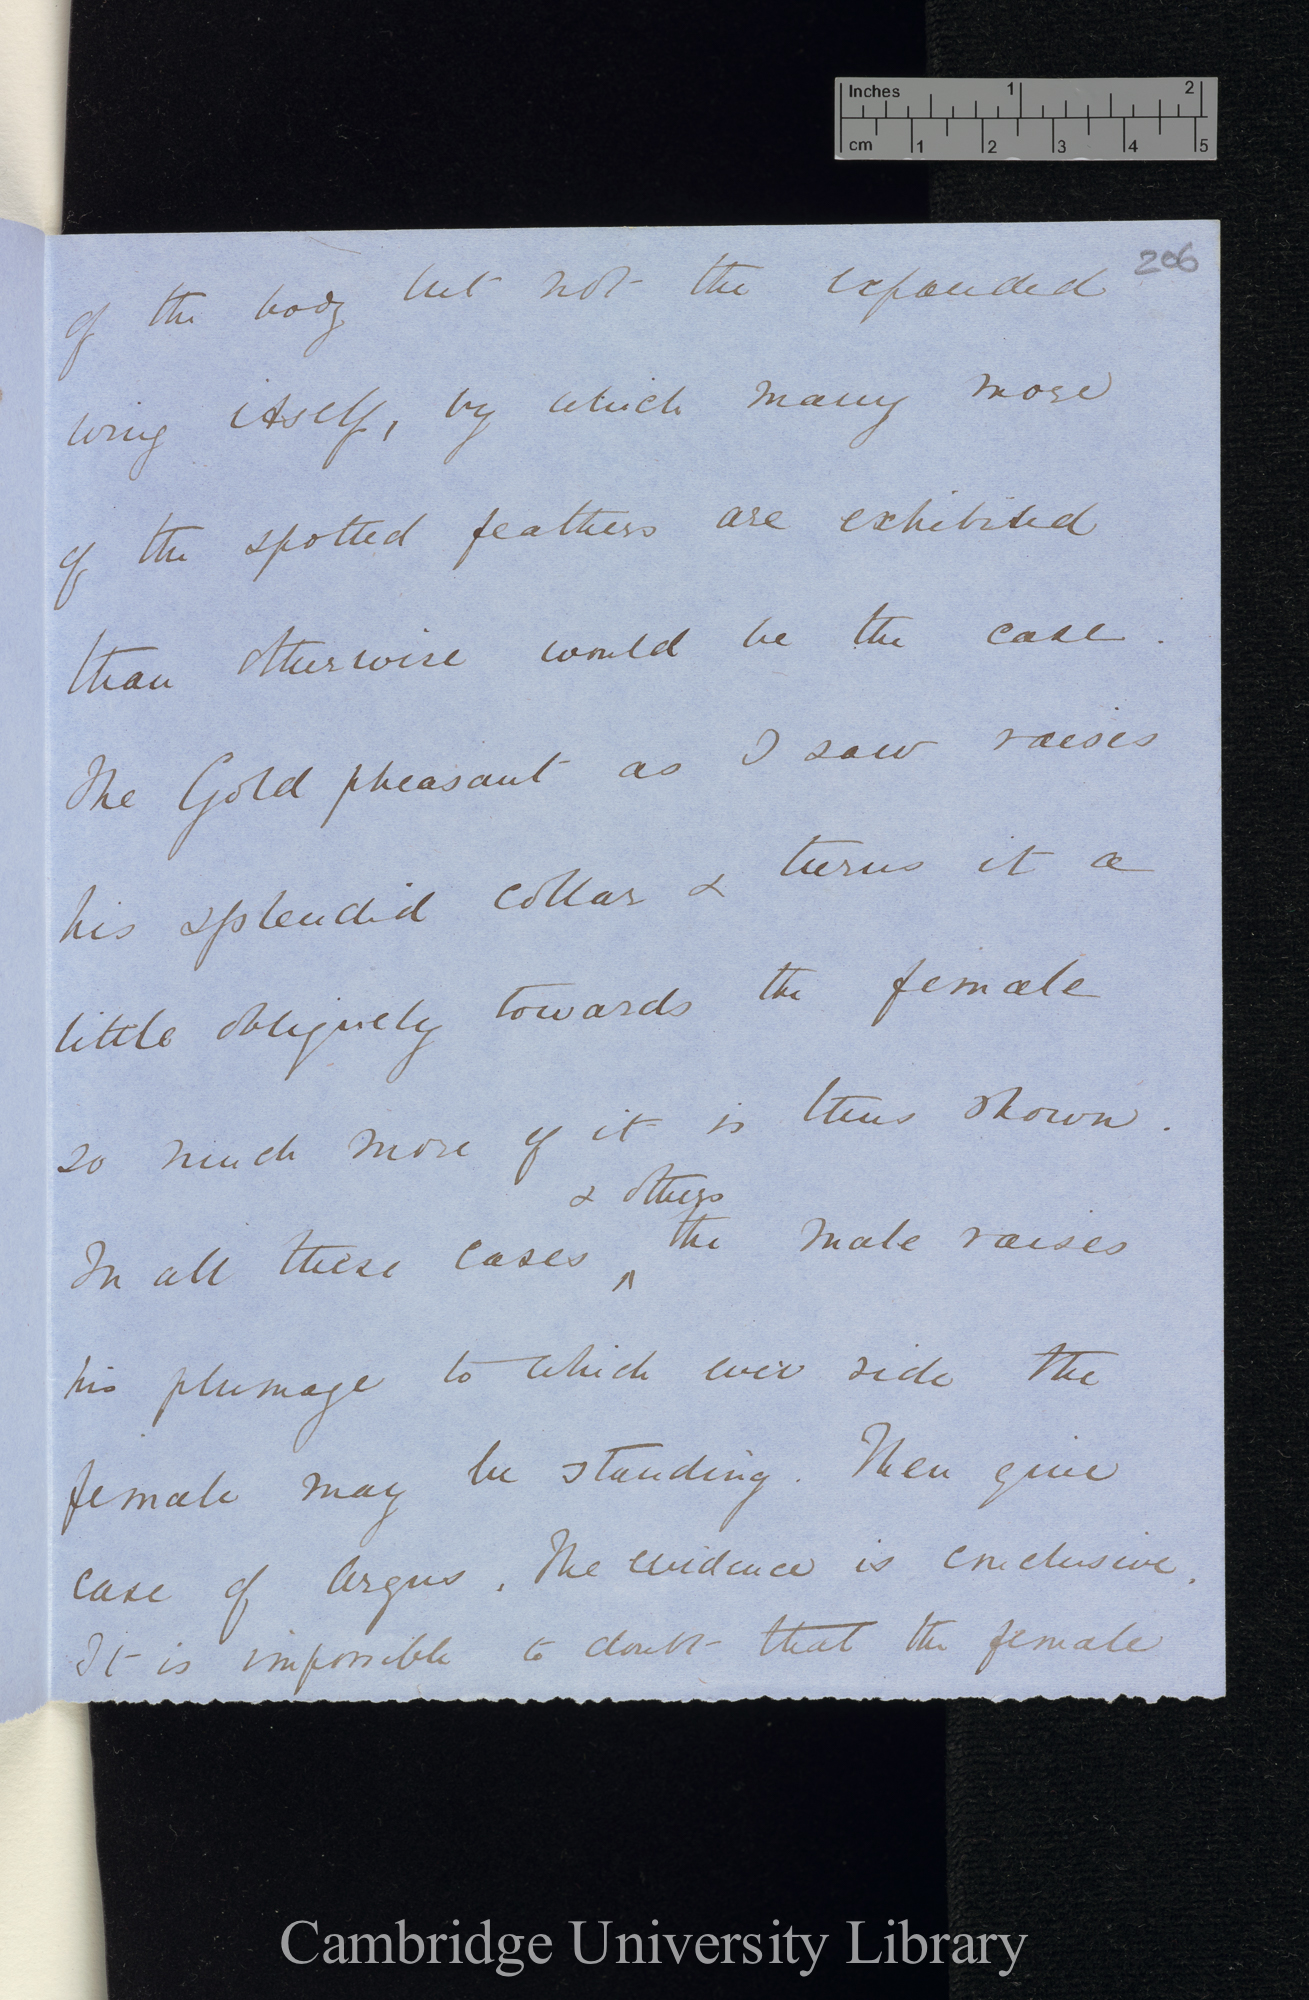 Inches 1 2
cm 1 2 3 4 5
206
of the body but not the expanded
wing itself, by which many more
of the spotted feathers are exhibited
than otherwise would be the case.
The Gold pheasant as I saw raises
his splendid collar & turns it a
little obliquely towards the female
so much more of it is thus shown.
& others
In all these cases ^ the male raises
his plumage to which ever side the
female may be standing. Then give
case of Argus. The evidence is conclusive.
It is impossible to doubt that the female
Cambridge University Library